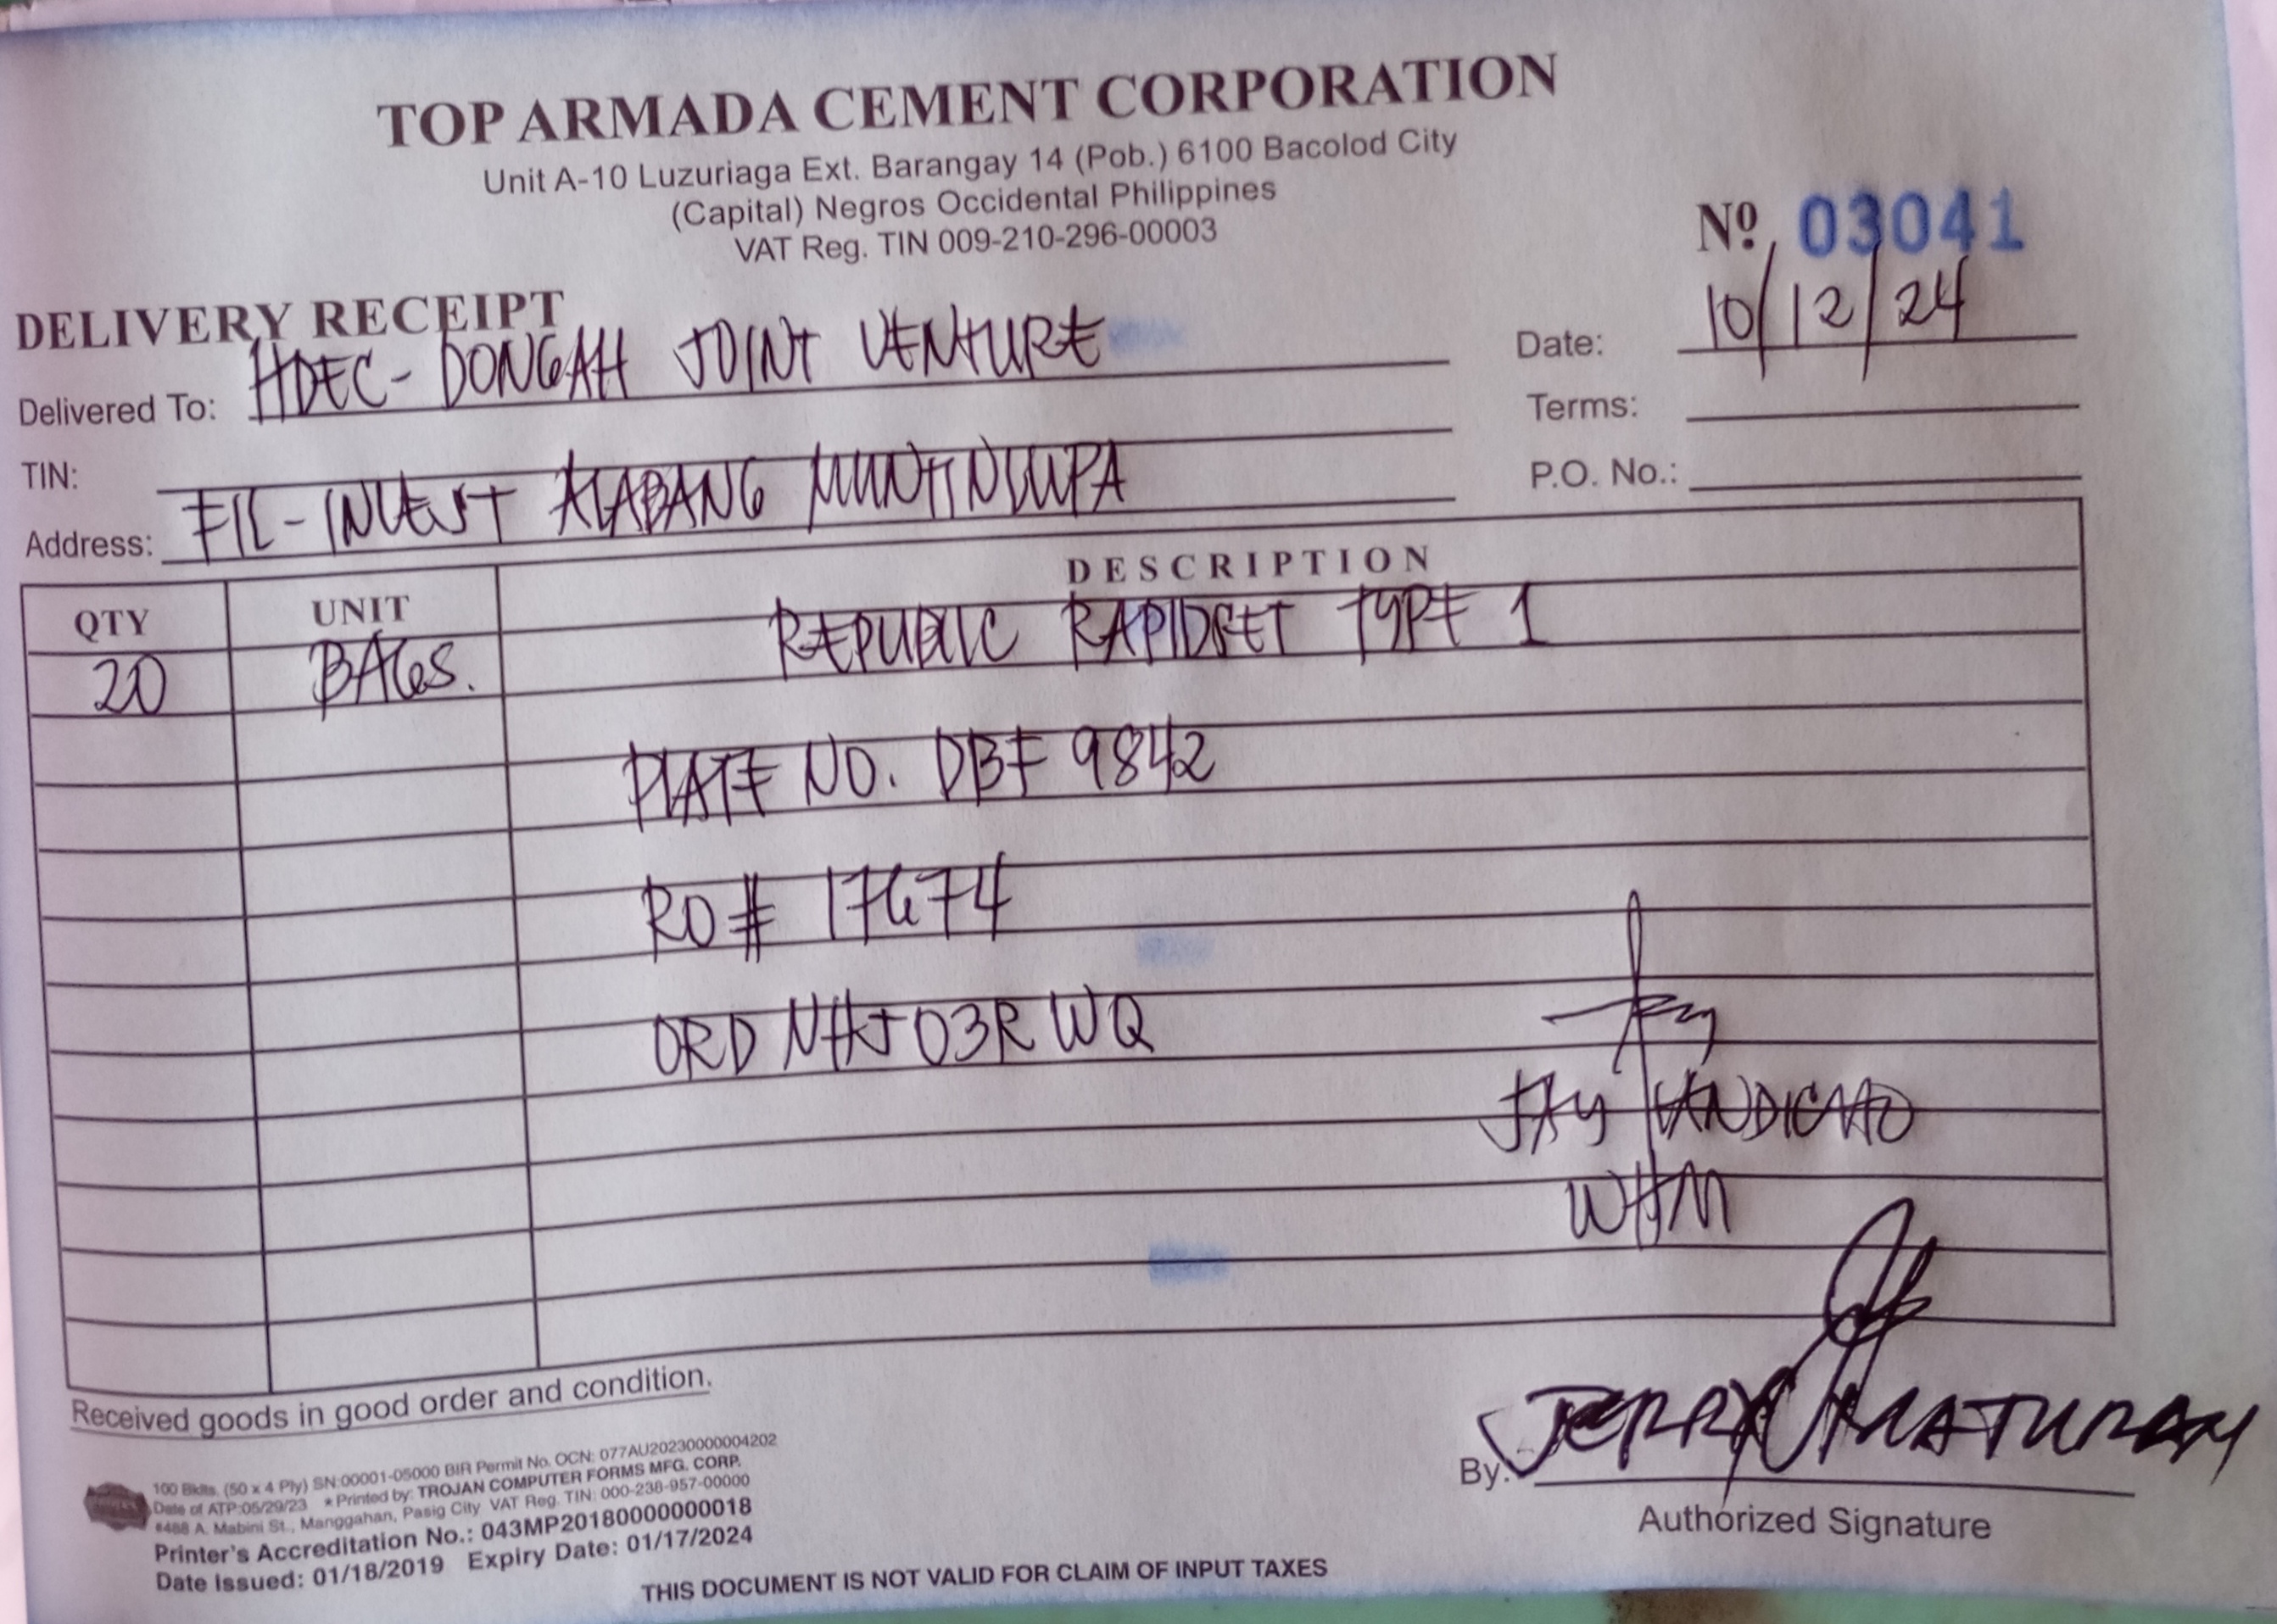 TOP ARMADA CEMENT CORPORATION
Unit A-10 Luzuriaga Ext. Barangay 14 (Pob.) 6100 Bacolod City
(Capital) Negros Occidental Philippines
VAT Reg. TIN 009-210-296-00003
Nº 03041
DELIVERY RECEIPT
Date: 10/12/24
Delivered To: HDEC- DONGAH JOINT VENTURE
Terms:
TIN:
P.O. No.:
Address: FIL-INVEST ALABANG MUNTINLUPA
QTY UNIT DESCRIPTION
20 BAGS. REPUBLIC RAPIDSET TYPE 1
PLATE NO. DBF 9842
RO# 17674
ORD NHJ03RWQ
JAY
WHM
Received goods in good order and condition.
By: JERRY MATURAN
Authorized Signature
100 Bklts. (50 x 4 Ply) SN:00001-05000 BIR Permit No. OCN: 077AU20230000004202
Date of ATP:05/29/23 * Printed by: TROJAN COMPUTER FORMS MFG. CORP.
#488 A. Mabini St., Manggahan, Pasig City VAT Reg. TIN: 000-238-957-00000
Printer's Accreditation No.: 043MP20180000000018
Date Issued: 01/18/2019 Expiry Date: 01/17/2024
THIS DOCUMENT IS NOT VALID FOR CLAIM OF INPUT TAXES